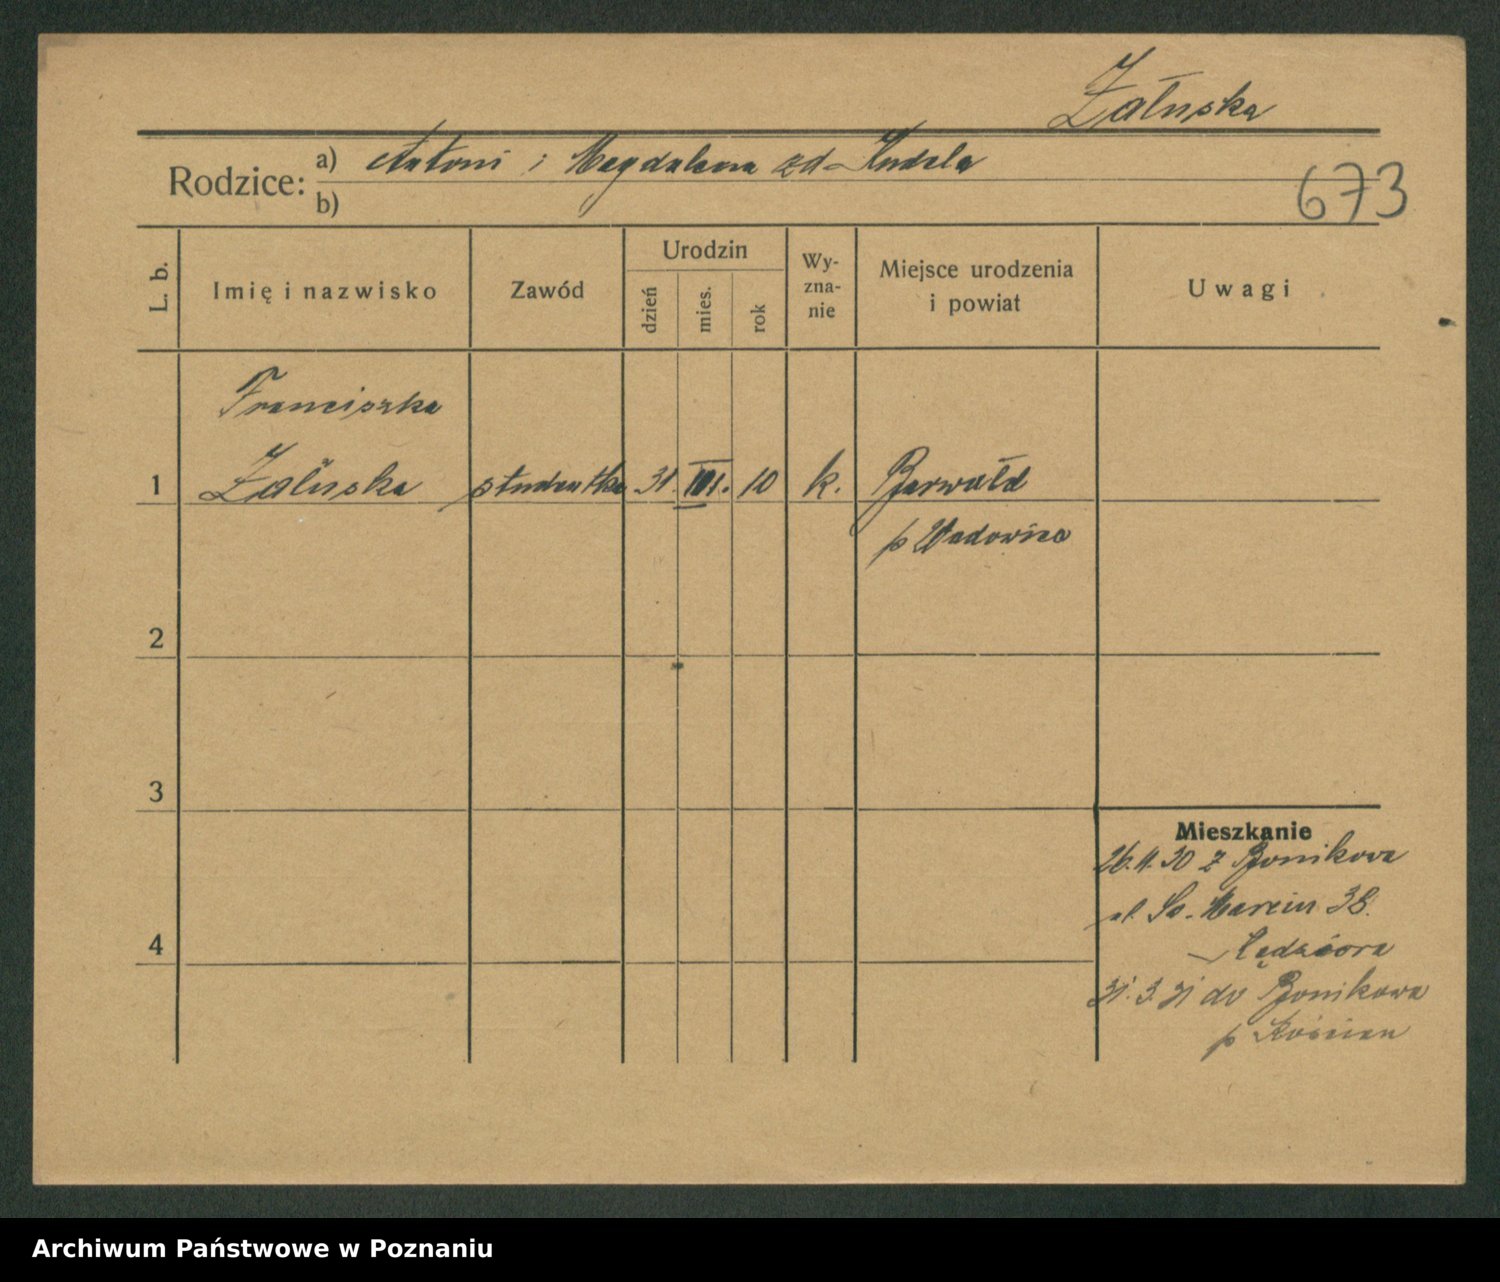 Załuska
Rodzice: a) Antoni i Magdalena zd. Kudela
b)
673
L. b.
Imię i nazwisko
Zawód
Urodzin
dzień
mies.
rok
Wy-
zna-
nie
Miejsce urodzenia
i powiat
Uwagi
Franciszka
1 Załuska studentka 31. III. 10 k. Barwałd
p Wadowice
2
3
Mieszkanie
z Bonikowa
ul. Św. Marcin 38.
4
Kędziora
31. 3. 31 do Bonikowa
p Kościan
Archiwum Państwowe w Poznaniu